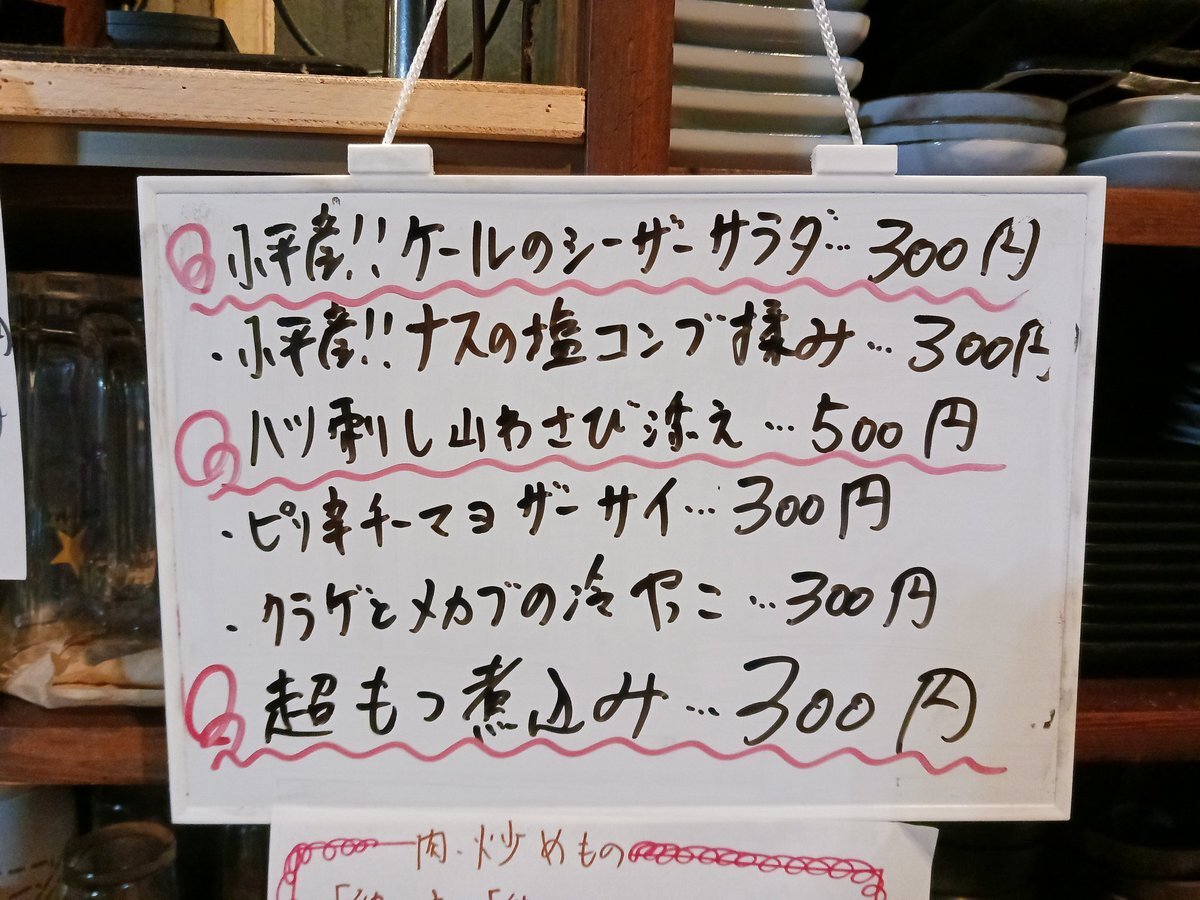 小平産!!ケールのシーザーサラダ…300円
・小平産!!ナスの塩コンブ揉み…300円
ハツ刺し山わさび添え…500円
・ピリ辛チーマヨザーサイ…300円
・クラゲとメカブの冷やっこ…300円
超もつ煮込み…300円
肉・炒めもの